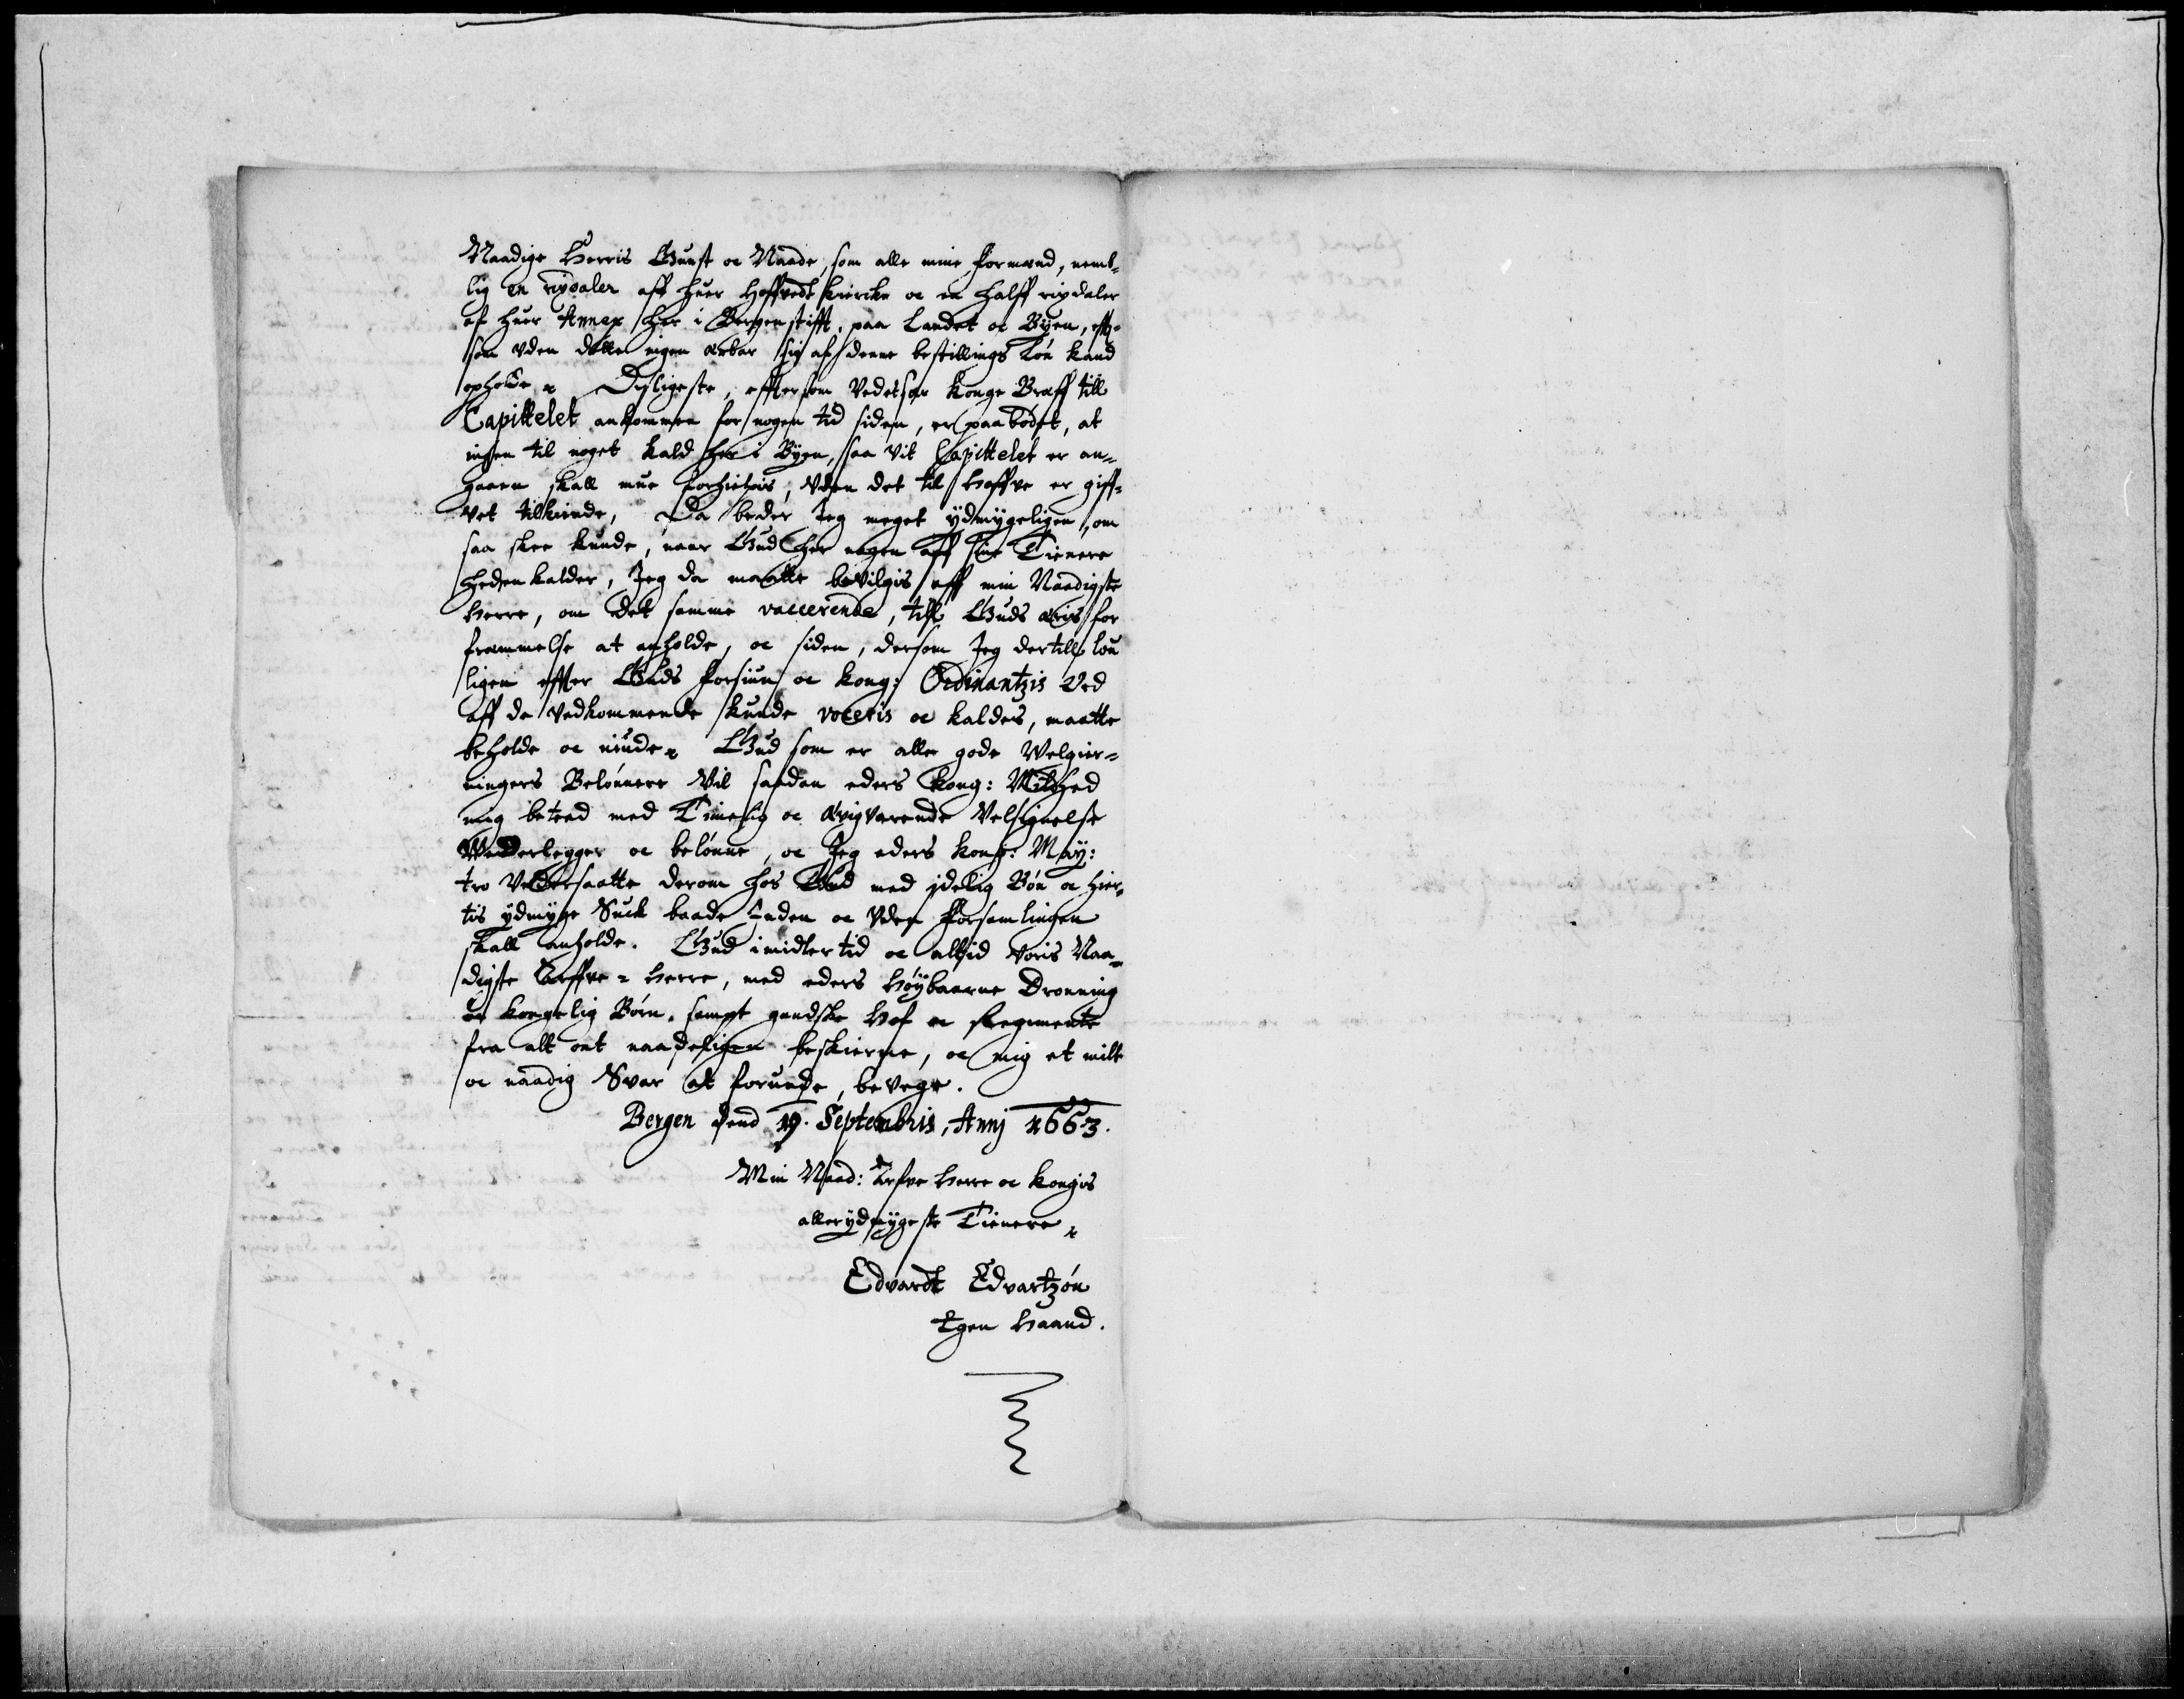 Naadige Herris Gunst oc Naade, som alle mine formænd, nemb-
lig en rixdaler aff huer Hoffvedt kiercke oc en halff rixdaler
af huer Annex her i Bergenstifft, paa Landet oc Byen, efft-
som uden dette ingen ærbar sig af denne bestillings Løn kand
opholde. Disligeste, effter som Vedes for Konge Breff till
Capittelet ankommen for nogen tid siden, er paabödet, at
ingen til noget kald her i Byen, saa vit Capittelet er an-
gaaen skall mue forhielpis, uden det til Hoffve er giff-
vet tilkiende, Da beder Jeg meget ydmygeligen, om
saa skee kunde, naar Gud her nogen aff sine Tienere
heden kalder, Jeg da maatte bevilgis aff min Naadigste
Herre, om det samme vaccerende, till Guds æris for
fremmelse at anholde, oc siden, dersom Jeg dertill lou
ligen effter Guds forsiun oc kong: Ordinantzis Ved
aff de Vedkommende kunde voceris oc kaldes, maatte
beholde oc niude. Gud som er alle gode Welgier-
ningers Belönnere Vil saadan eders kong: Mildhed
mig beteed med Timelig oc ævigvarende Velsignelse
Wedderlegger oc belönne, oc Jeg eders kong: May:
tro Vndersaatte derom hos Gud med idelig Bön oc hier-
tis ydmyge Suck baade Inden oc Vden forsamlingen
skall anholde. Gud imidler tid oc altid voris Naa-
digste Arffve-Herre, med eders Höybaarne Dronning
oc kongelig Börn, sampt gandske Hof oc Regimente
fra alt ont naadeligen beskierme, oc mig et milt
oc naadig Svar at forunde, bevege.
Bergen dend 19. Septembris, Anni 1663.
Min Naad: Arfve Herre oc Kongis
allerydmygeste Tienere
Edvardt Edvartzön
Egen Haand.